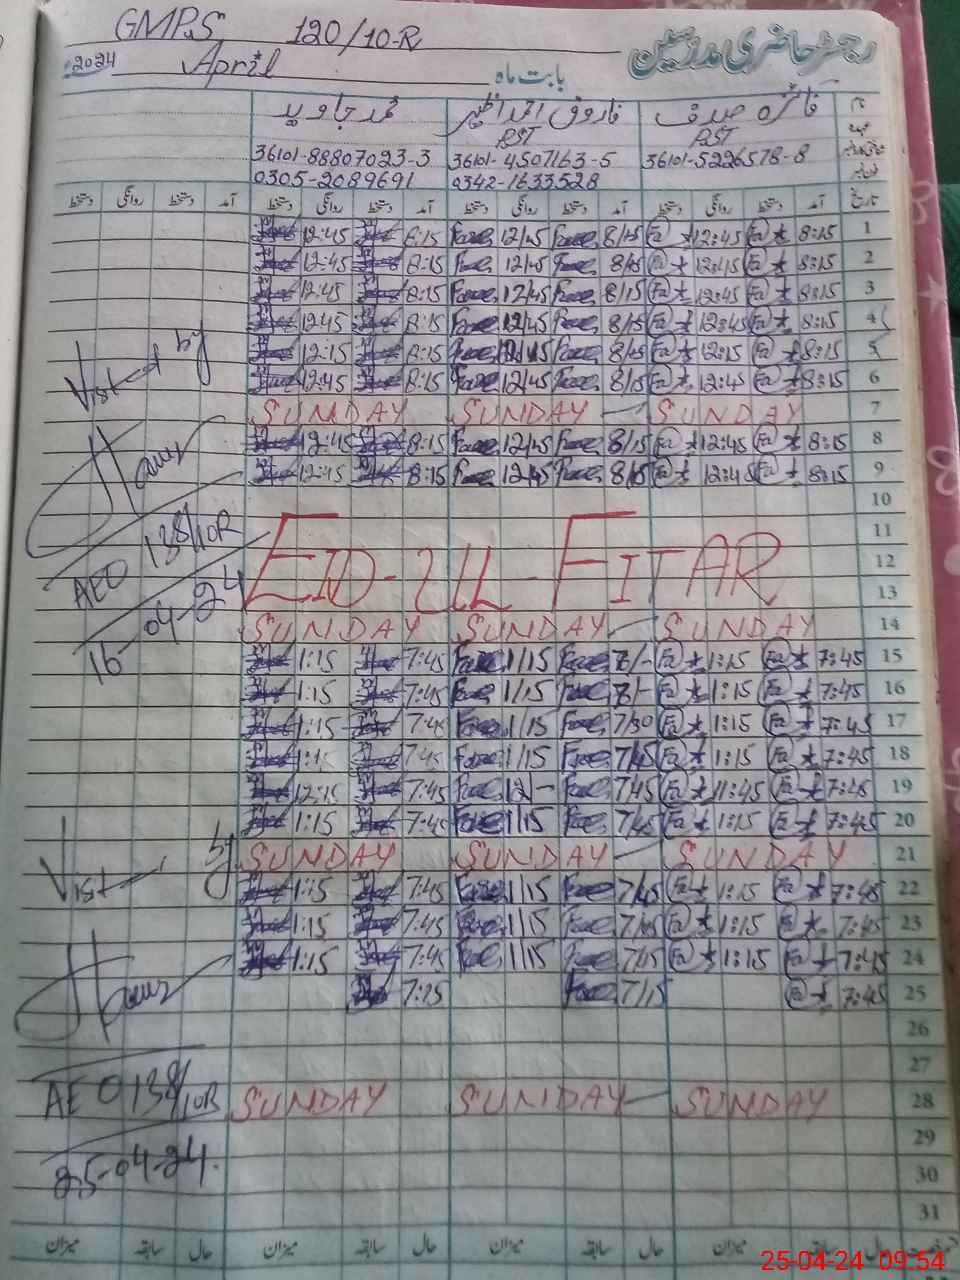 GMP.S 120/10-R
رجسٹر حاضری مدرسین
2024 April بابت ماہ
محمد جاوید فاروق احمد
PST PST
36101-88807023-3 36101-4507163-5 36101-5226578-8
0305-2089691 0342-1633528
دستخط روانگی دستخط آمد دستخط روانگی دستخط آمد دستخط روانگی دستخط آمد دستخط روانگی دستخط آمد تاریخ
12:45 8:15 12/45 8/15 Fa 12:45 Fa 8:15 1
12:45 8:15 12/45 8/15 Fa 12:45 Fa 8:15 2
12:45 8:15 12/45 8/15 Fa 12:45 Fa 8:15 3
12:45 8:15 12/45 8/15 Fa 12:45 Fa 8:15 4
12:15 8:15 8/15 Fa 12:15 Fa 8:15 5
12:45 8:15 12/45 8/15 Fa 12:45 Fa 8:15 6
SUNDAY SUNDAY SUNDAY 7
12:45 8:15 12/45 8/15 Fa 12:45 Fa 8:15 8
12:45 8:15 12/45 8/15 Fa 12:45 Fa 8:15 9
10
11
EID-UL-FITAR 12
13
SUNDAY SUNDAY SUNDAY 14
1:15 7:45 1/15 Fa 1:15 Fa 7:45 15
1:15 7:45 1/15 Fa 1:15 Fa 7:45 16
1:15 7:45 1/15 7/30 Fa 1:15 Fa 7:45 17
1:15 7:45 1/15 7/45 Fa 1:15 Fa 7:45 18
12:15 7:45 12/- 7/45 Fa 11:45 Fa 7:45 19
1:15 7:45 1/15 7/45 Fa 1:15 Fa 7:45 20
SUNDAY SUNDAY SUNDAY 21
1:15 7:45 1/15 7/45 Fa 1:15 Fa 7:45 22
1:15 7:45 1/15 7/45 Fa 1:15 Fa 7:45 23
1:15 7:45 1/15 7/45 Fa 1:15 Fa 7:45 24
7:15 7/15 Fa 7:45 25
26
27
SUNDAY SUNDAY SUNDAY 28
29
30
31
Visted by
AEO 138/10R
16-04-24
by
AEO 138/10R
25-04-24.
میزان سابقہ حال میزان سابقہ حال میزان سابقہ حال میزان سابقہ حال
25-04-24 09:54